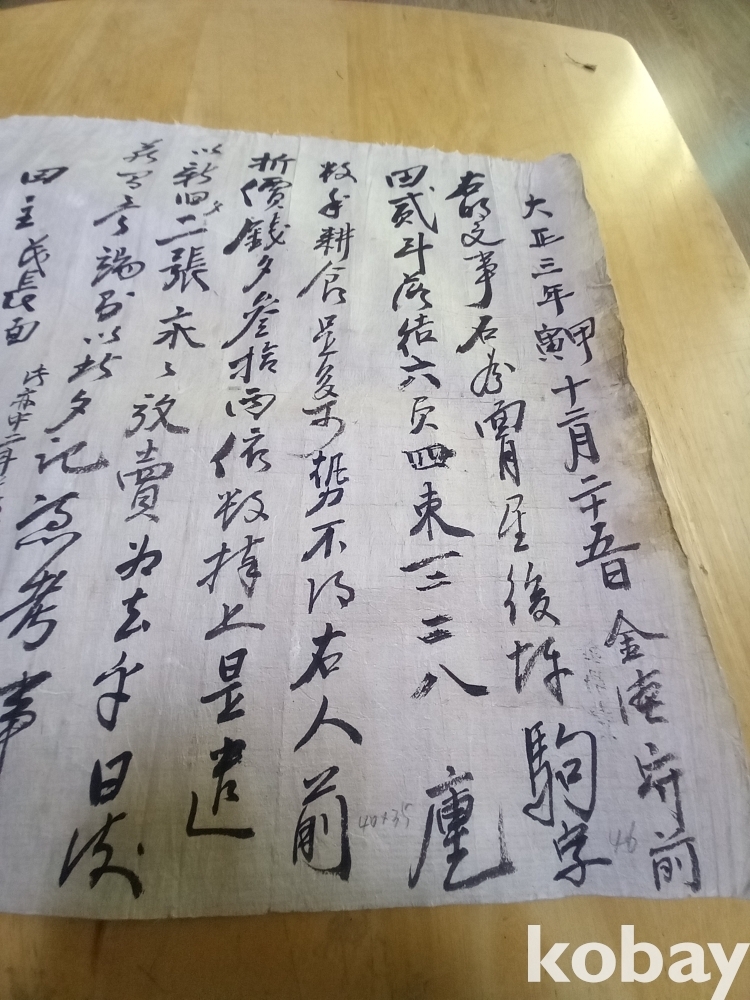 大正三年甲寅十二月二十五日 金 宅前
右明文事 後坪 駒字
田貳斗落結六負四束 三三八 廛
數年耕食是多可 勢不得右人前
折價錢文參拾兩依數捧上是遣
以新旧文二張永永放賣爲去乎日後
若有 端則以此文記憑考事
田主 長面
46
40×35
kobay